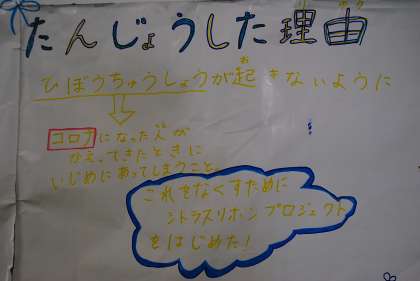 たんじょうした理由
ひぼうちゅうしょうが起きないように
コロナになった人が
ふえてきたときに
いじめにあってしまうこと。
これをなくすために
シトラスリボンプロジェクト
をはじめた!